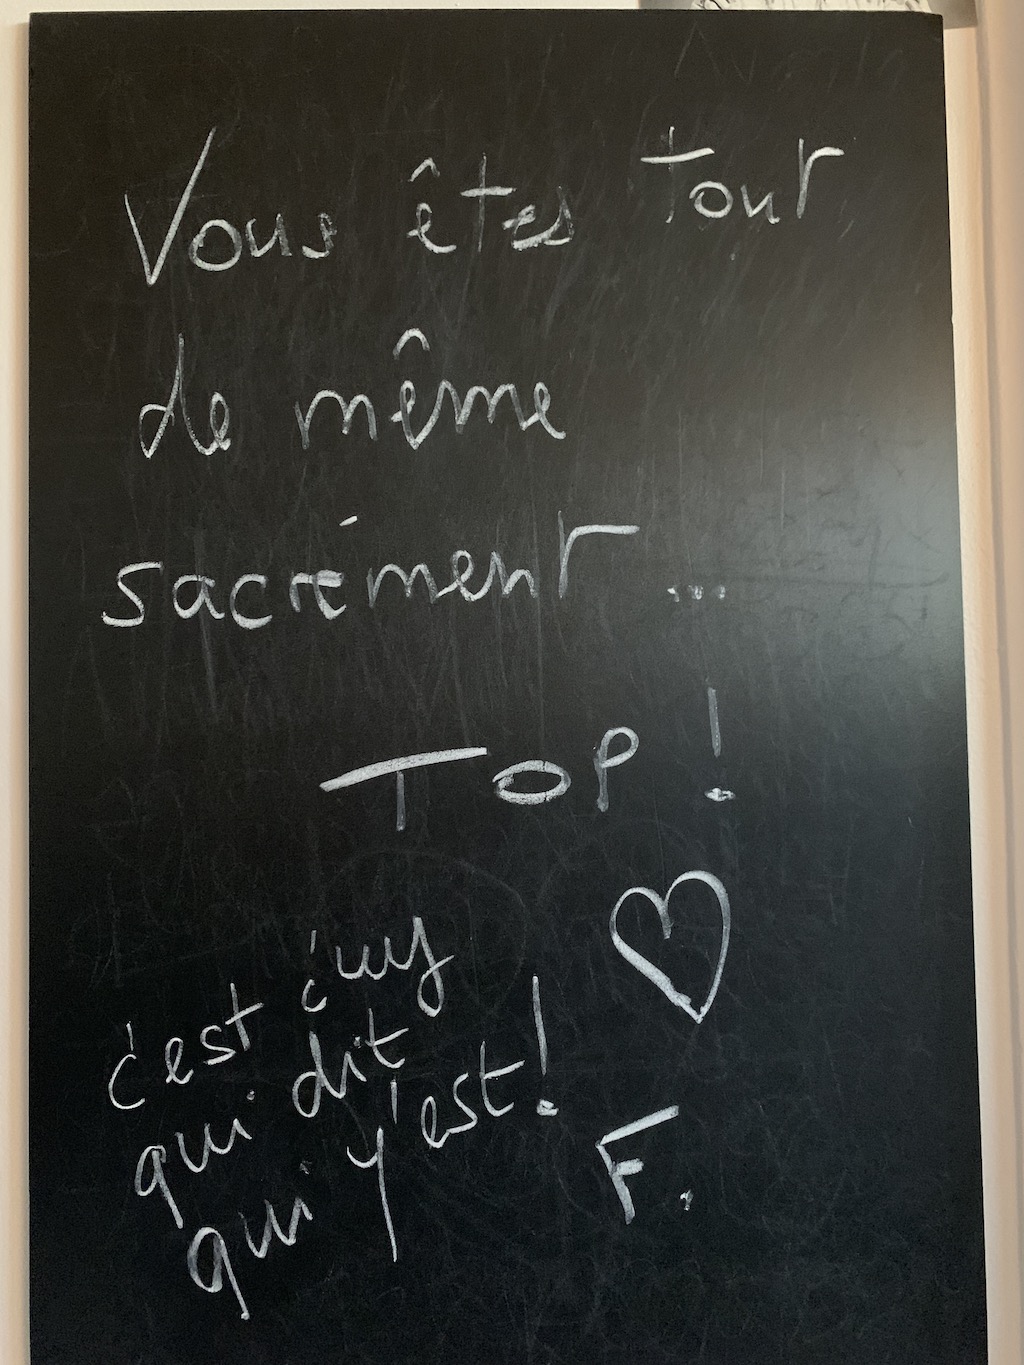 Vous êtes tout
de même
sacrément ...
TOP !
c'est c'uy
qui dit
qui y'est !
F.